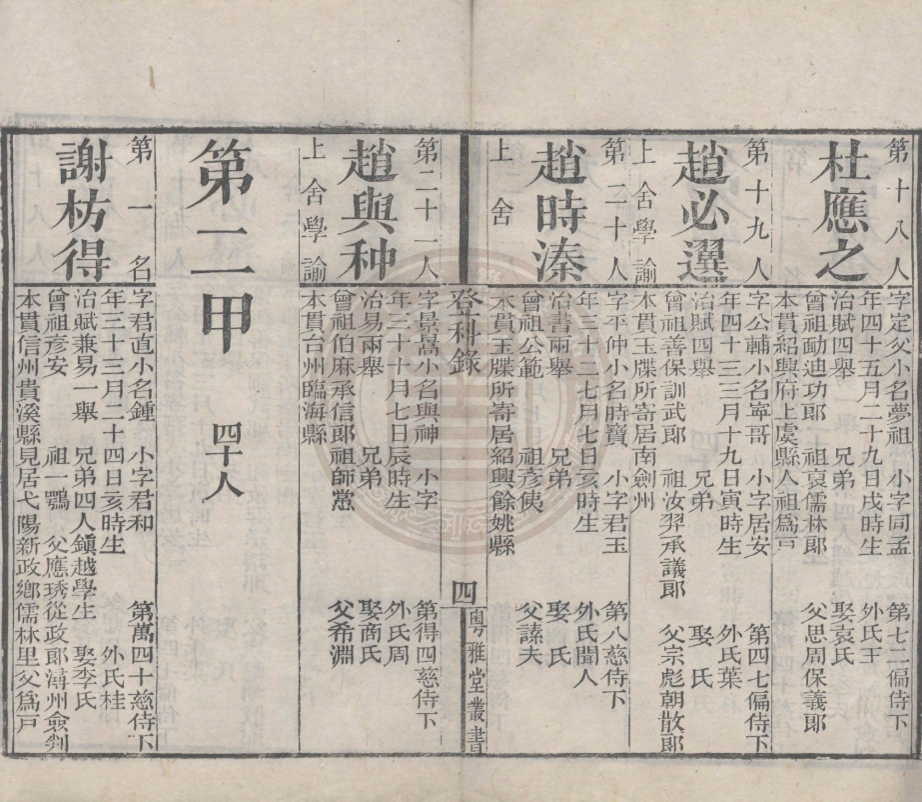 第十八人
杜應之
字定父小名夢祖　小字同孟　第七二偏侍下
年四十五月二十九日戌時生　外氏王
治賦四舉　兄弟　娶袁氏
曾祖勔迪功郎　祖袞儒林郎　父思周保義郎
本貫紹興府上虞縣人祖爲戸
第十九人
趙必選
上舍學諭
字公輔小名寄哥　小字居安　第四七偏侍下
年四十三三月十九日寅時生　外氏葉
治賦四舉　兄弟　娶　氏
曾祖善保訓武郎　祖汝羿承議郎　父宗彪朝散郎
本貫玉牒所寄居南劍州
第二十人
趙時溱
上舍
字平仲小名時寶　小字君玉　第八慈侍下
年三十三七月七日亥時生　外氏聞人
治書兩舉　兄弟　娶　氏
曾祖公範　祖彥侇　父諘夫
本貫玉牒所寄居紹興餘姚縣
登科錄
四
粵雅堂叢書
第二十一人
趙與种
上舍學諭
字景暠小名與神　小字　第得四慈侍下
年三十十月七日辰時生　外氏周
治易兩舉　兄弟　娶商氏
曾祖伯麻承信郎　祖師㦤　父希淵
本貫台州臨海縣
第二甲　四十人
第一名
謝枋得
字君直小名鍾　小字君和　第萬四十慈侍下
年三十三月二十四日亥時生　外氏桂
治賦兼易一舉　兄弟四人鎭越學生　娶李氏
曾祖彥安　祖一鶚　父應琇從政郎潯州僉判
本貫信州貴溪縣見居弋陽新政鄉儒林里父爲戸